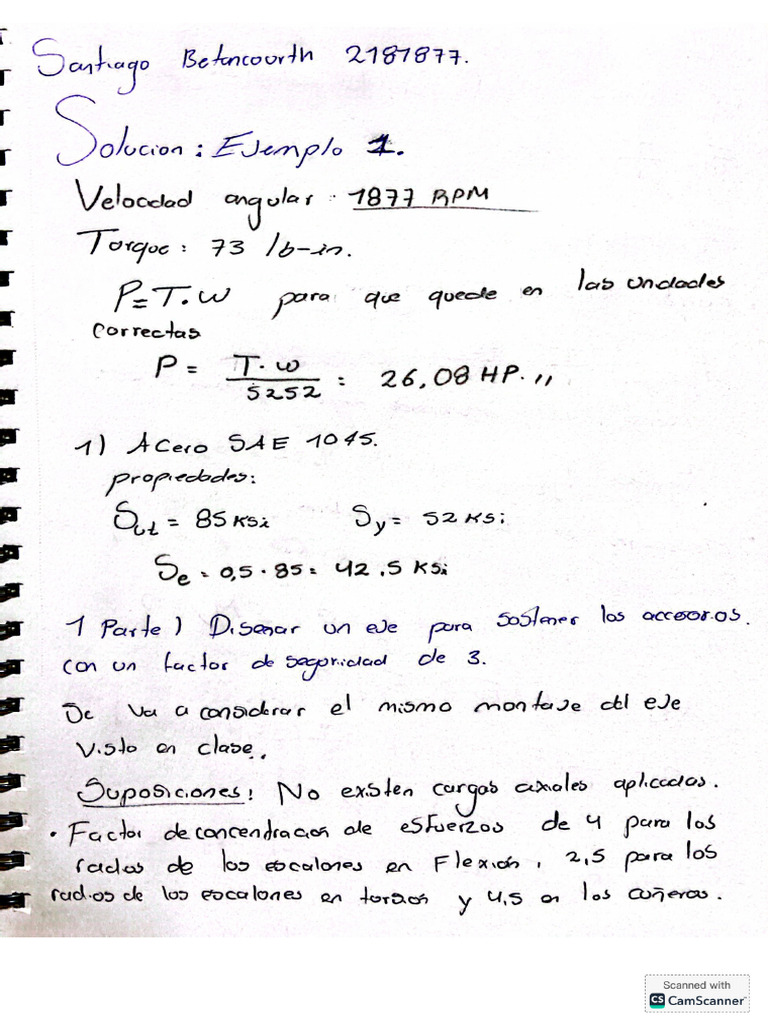 Santiago Betancourth 2187877.
Solucion: Ejemplo 1.
Velocidad angular: 1877 RPM
Torque: 73 lb-in.
P=T.w para que quede en las unidades
correctas
P = T.w / 5252 = 26,08 HP.,,
1) Acero SAE 1045.
propiedades:
Sut = 85 Ksi Sy = 52 Ksi
Se = 0,5 . 85 = 42.5 Ksi
1 Parte) Diseñar un eje para sostener los accesorios.
con un factor de seguridad de 3.
Se va a considerar el mismo montaje del eje
visto en clase.
Suposiciones: No existen cargas axiales aplicadas.
• Factor de concentración de esfuerzos de 4 para los
radios de los escalones en Flexión, 2,5 para los
radios de los escalones en torsion y 4,5 en los cuñeros.
Scanned with
CS CamScanner